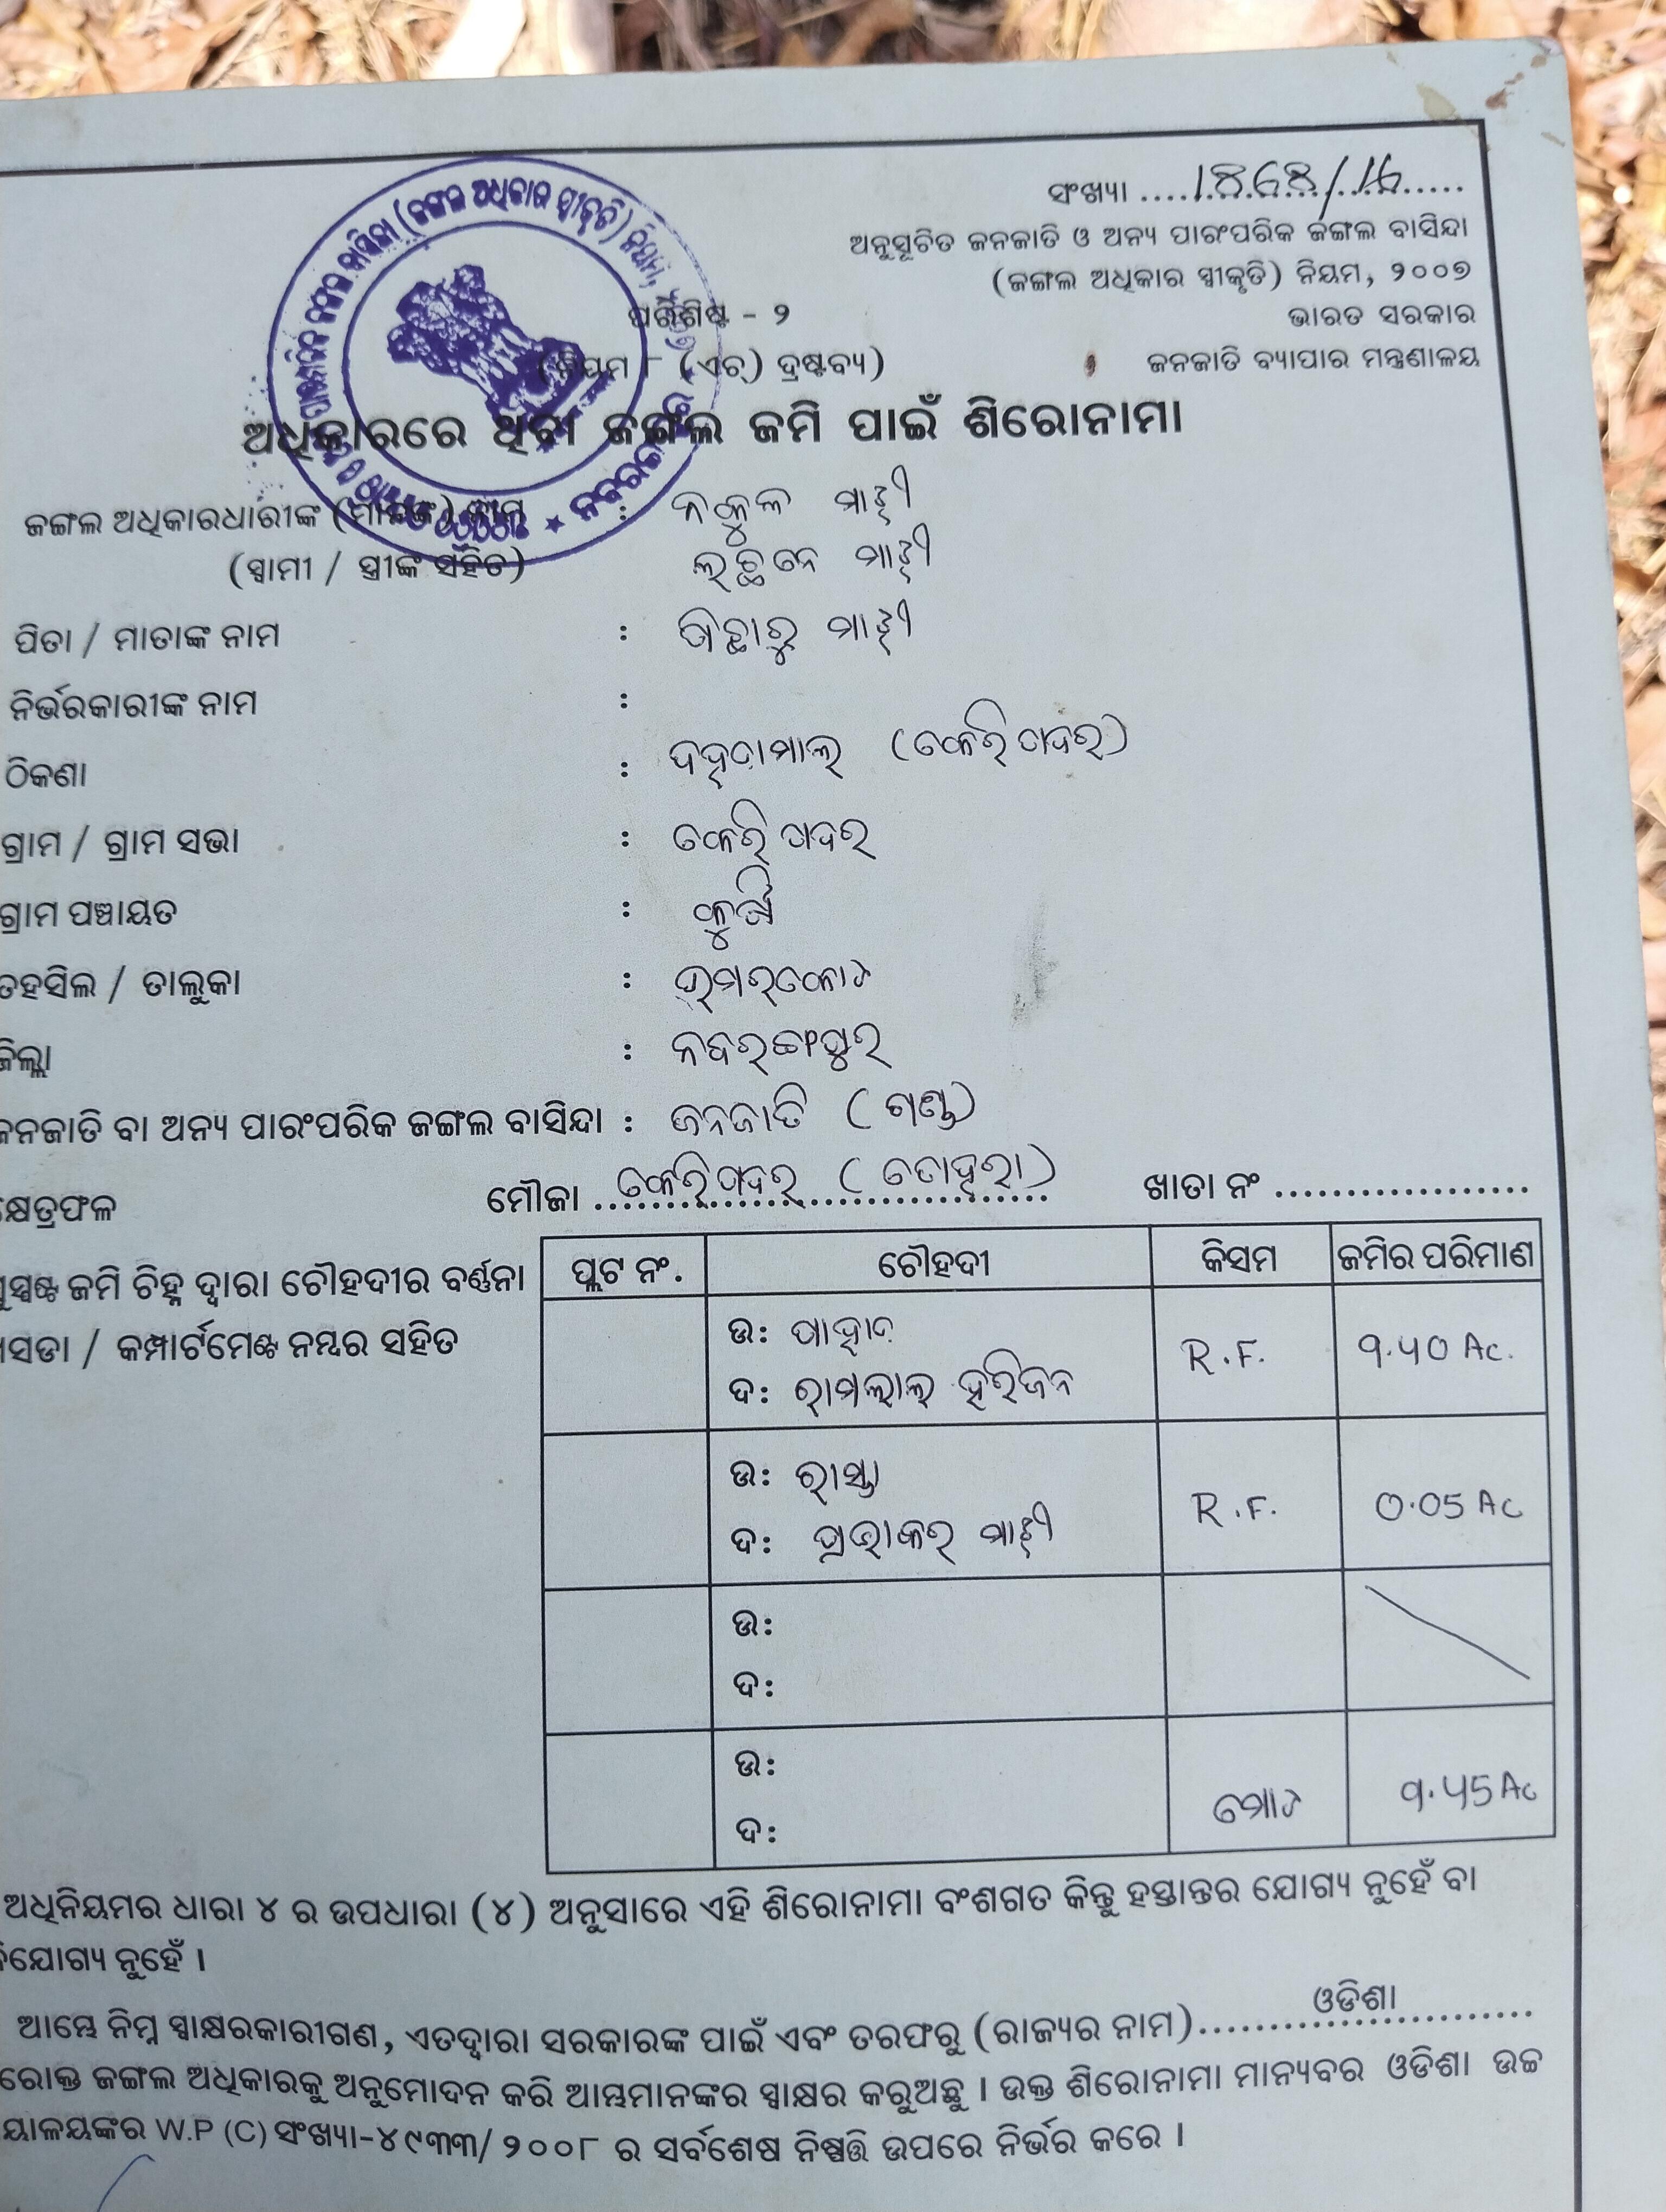 ସଂଖ୍ୟା ....................
ଅନୁସୂଚିତ ଜନଜାତି ଓ ଅନ୍ୟ ପାରଂପରିକ ଜଙ୍ଗଲ ବାସିନ୍ଦା
(ଜଙ୍ଗଲ ଅଧିକାର ସ୍ୱୀକୃତି) ନିୟମ, ୨୦୦୭
ଭାରତ ସରକାର
ଜନଜାତି ବ୍ୟାପାର ମନ୍ତ୍ରଣାଳୟ
ପରିଶିଷ୍ଟ - ୨
(ନିୟମ ୮ (ଏଚ୍) ଦ୍ରଷ୍ଟବ୍ୟ)
ଅଧିକାରରେ ଥିବା ଜଙ୍ଗଲ ଜମି ପାଇଁ ଶିରୋନାମା
ଜଙ୍ଗଲ ଅଧିକାରଧାରୀଙ୍କ (ମାନଙ୍କ) ନାମ : ନକୁଳ ମାଝୀ
(ସ୍ୱାମୀ / ସ୍ତ୍ରୀଙ୍କ ସହିତ) ମାଝୀ
ପିତା / ମାତାଙ୍କ ନାମ : ମାଝୀ
ନିର୍ଭରକାରୀଙ୍କ ନାମ :
ଠିକଣା :
ଗ୍ରାମ / ଗ୍ରାମ ସଭା :
ଗ୍ରାମ ପଞ୍ଚାୟତ :
ତହସିଲ / ତାଲୁକା :
ଜିଲ୍ଲା : ନବରଙ୍ଗପୁର
ଜନଜାତି ବା ଅନ୍ୟ ପାରଂପରିକ ଜଙ୍ଗଲ ବାସିନ୍ଦା : ଜନଜାତି (ଗଣ୍ଡ)
କ୍ଷେତ୍ରଫଳ ମୌଜା .................... ଖାତା ନଂ ..................
ସୁସ୍ପଷ୍ଟ ଜମି ଚିହ୍ନ ଦ୍ୱାରା ଚୌହଦୀର ବର୍ଣ୍ଣନା
ଖସଡା / କମ୍ପାର୍ଟମେଣ୍ଟ ନମ୍ବର ସହିତ
ପ୍ଲଟ ନଂ. ଚୌହଦୀ କିସମ ଜମିର ପରିମାଣ
ଉ: ପାହାଡ
ଦ: ରାମଲାଲ୍ ହରିଜନ R.F. 9.40 Ac.
ଉ: ରାସ୍ତା
ଦ: ପ୍ରଭାକର ମାଝୀ R.F. 0.05 Ac
ଉ:
ଦ:
ଉ:
ଦ: ମୋଟ 9.45 Ac
ଅଧିନିୟମର ଧାରା ୪ ର ଉପଧାରା (୪) ଅନୁସାରେ ଏହି ଶିରୋନାମା ବଂଶଗତ କିନ୍ତୁ ହସ୍ତାନ୍ତର ଯୋଗ୍ୟ ନୁହେଁ ବା
ନୁହେଁ ।
ଆମ୍ଭେ ନିମ୍ନ ସ୍ୱାକ୍ଷରକାରୀଗଣ, ଏତଦ୍ୱାରା ସରକାରଙ୍କ ପାଇଁ ଏବଂ ତରଫରୁ (ରାଜ୍ୟର ନାମ) ........ଓଡିଶା..........
ଜଙ୍ଗଲ ଅଧିକାରକୁ ଅନୁମୋଦନ କରି ଆମ୍ଭମାନଙ୍କର ସ୍ୱାକ୍ଷର କରୁଅଛୁ । ଉକ୍ତ ଶିରୋନାମା ମାନ୍ୟବର ଓଡିଶା ଉଚ୍ଚ
W.P (C) ସଂଖ୍ୟା-୪୯୩୩/୨୦୦୮ ର ସର୍ବଶେଷ ନିଷ୍ପତ୍ତି ଉପରେ ନିର୍ଭର କରେ ।